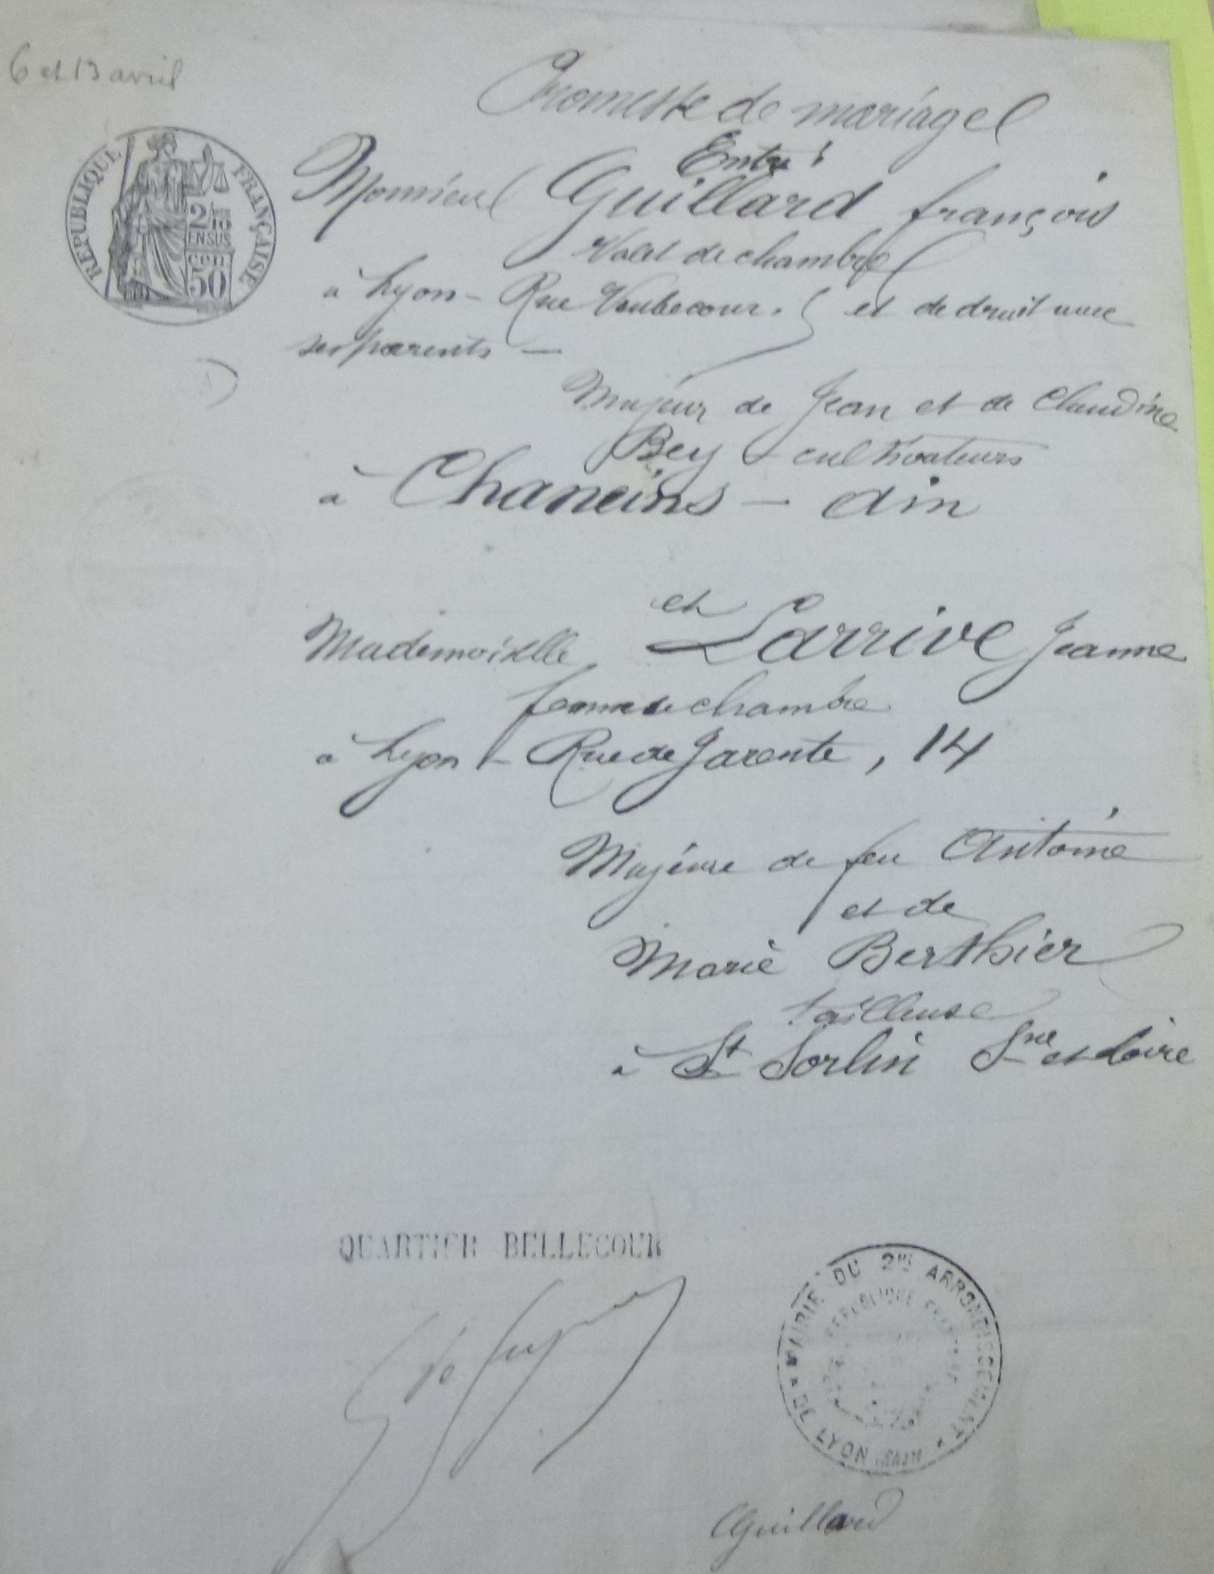 6 et 13 avril
Promesse de mariage
Entre
Monsieur Guillard françois
Valet de chambre
à Lyon - Rue Vaubecour. et de droit avec
ses parents -
Majeur de Jean et de Claudine
Bey - cultivateurs
à Chaneins - Ain
et
Mademoiselle Larrive Jeanne
femme de chambre
à Lyon - Rue de Jarente, 14
Majeure de feu Antoine
et de
Marie Berthier
tailleuse
à St Sorlin Sne et Loire
REPUBLIQUE FRANÇAISE
2/10 EN SUS
50
QUARTIER BELLECOUR
MAIRIE DU 2me ARRONDISSEMENT DE LYON
REPUBLIQUE FRANÇAISE
Guillard